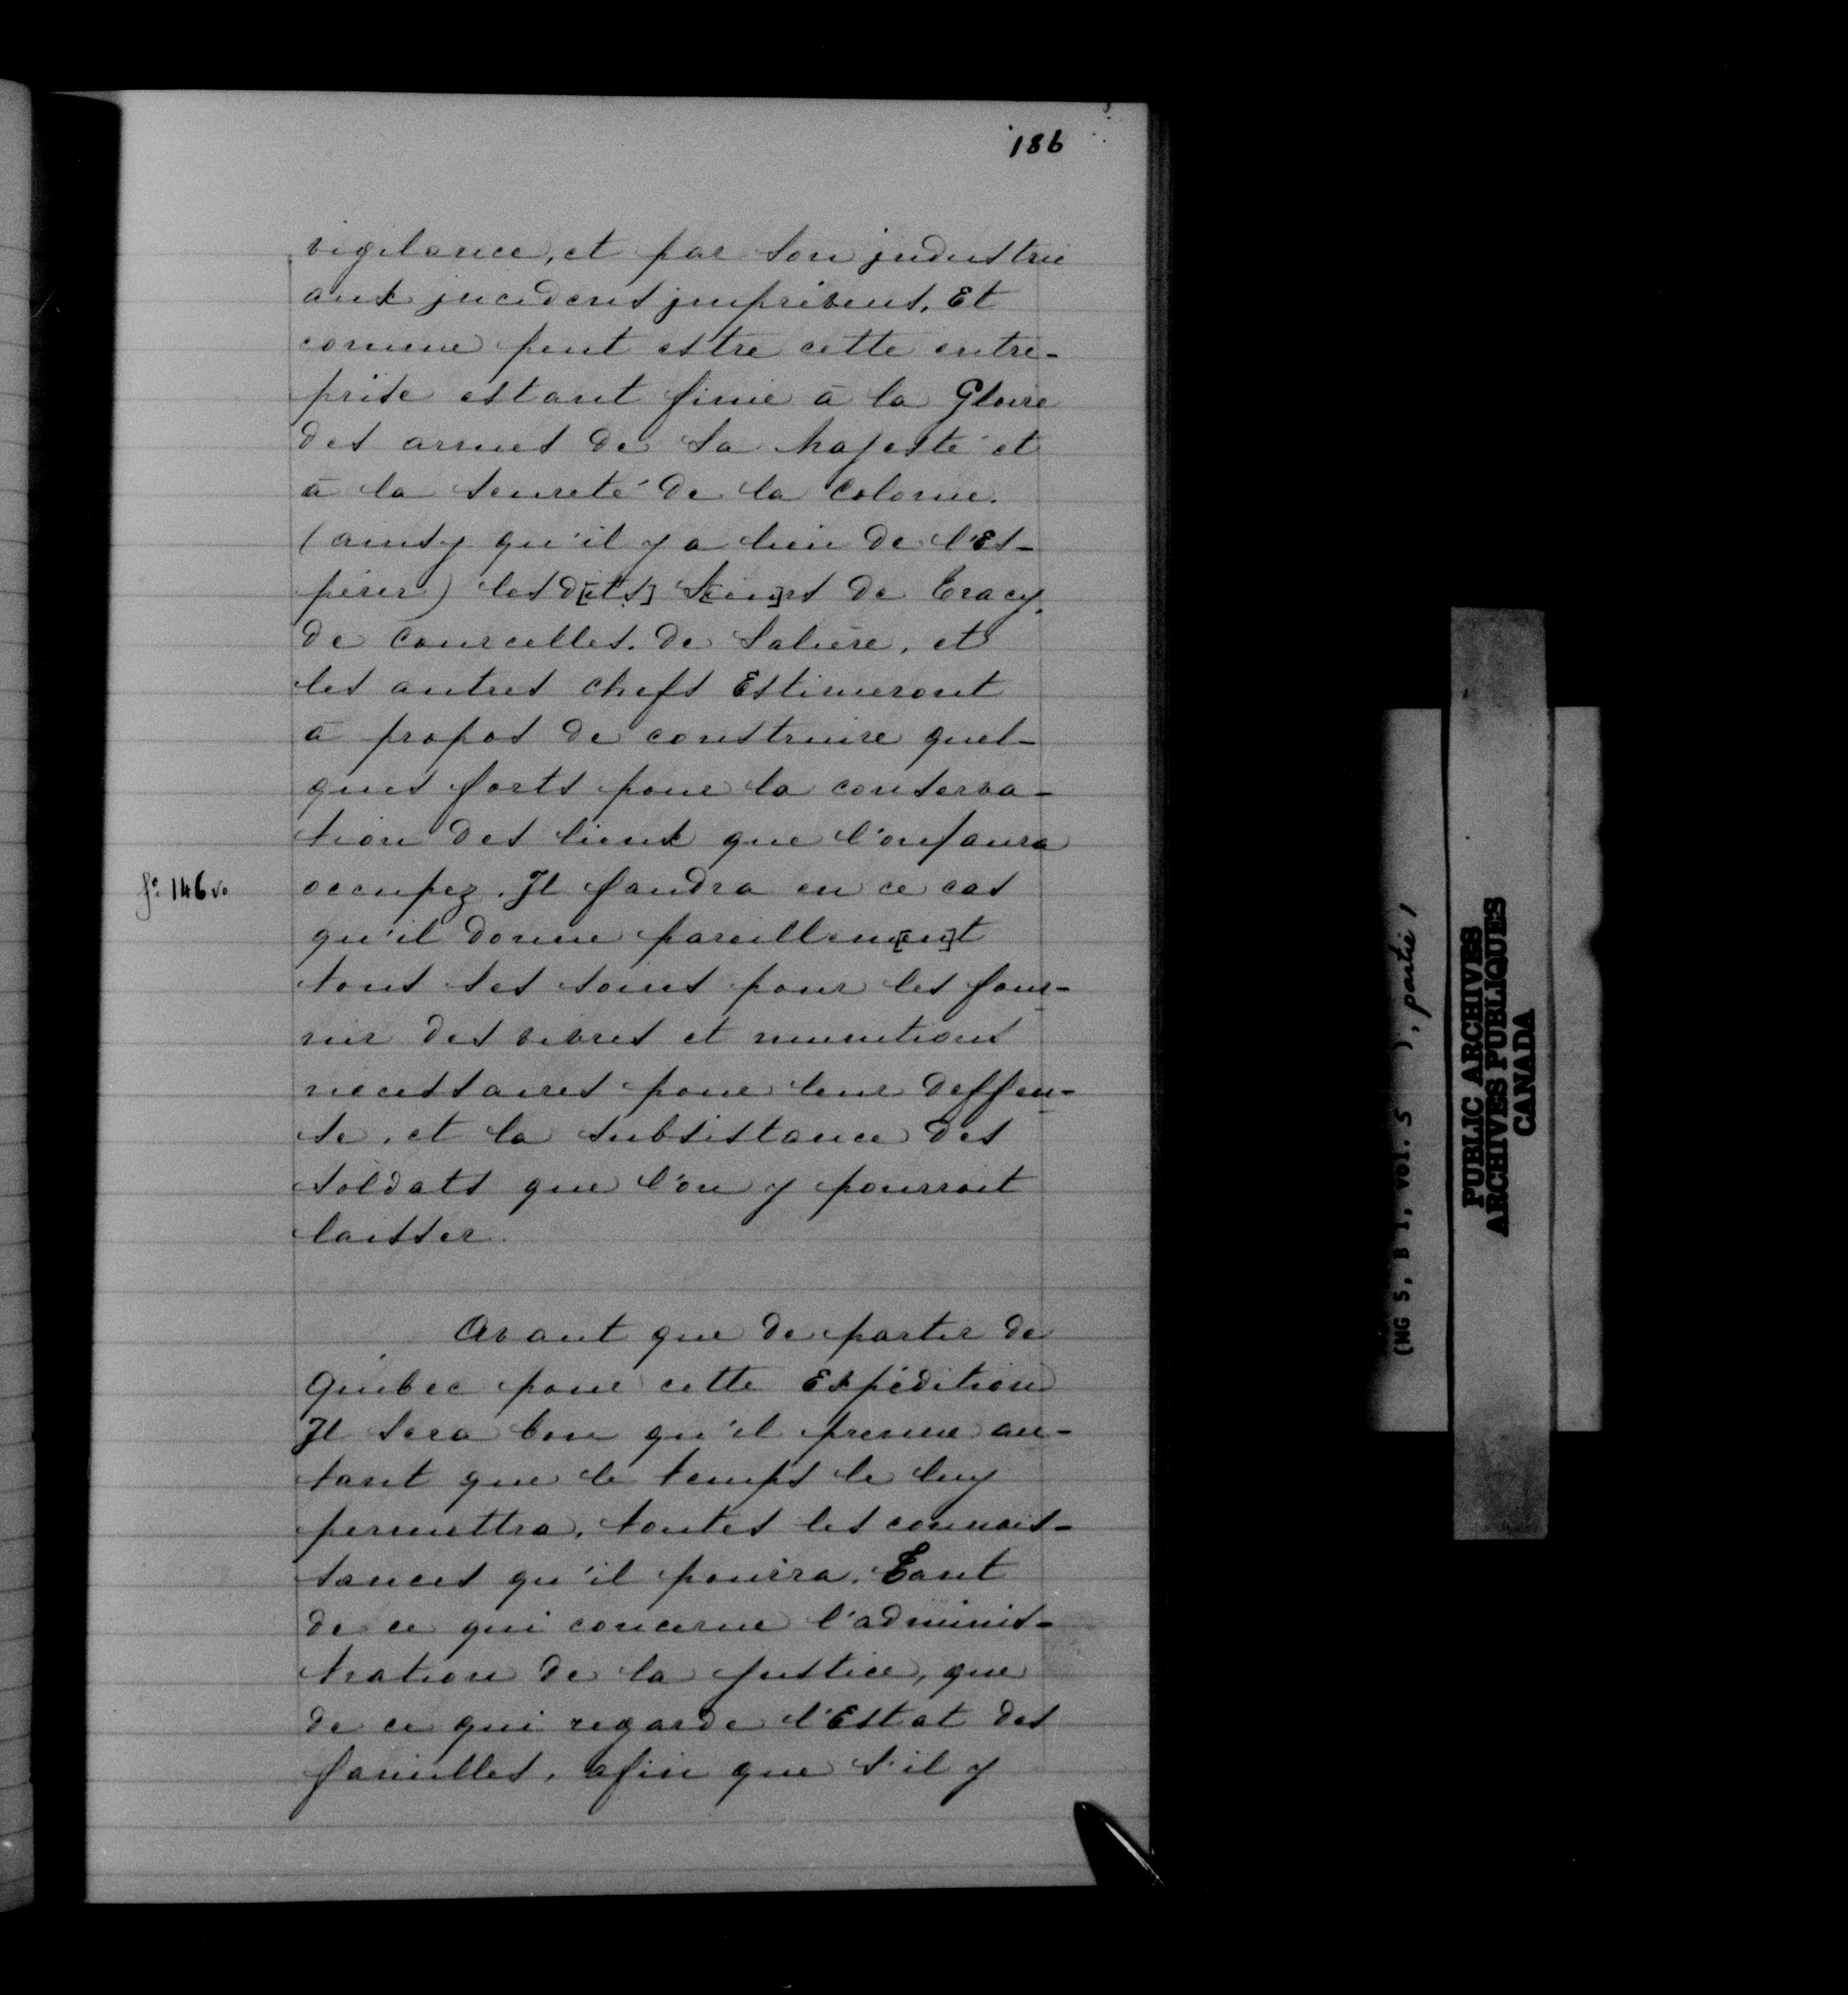 186
vigilance, et par son jndustrie
aux jncidens jmpréveus. Et
comme peut estre cette entre-
prise estant finie à la Gloire
des armes de Sa Majesté et
à la seureté de la Colonie.
(ainsy qu'il y a lieu de l'Es-
pérer) lesd[its] S[ieu]rs de Tracy.
de Courcelles. de Salière, et
les autres chefs Estimeront
à propos de construire quel-
ques forts pour la conserva-
tion des lieux que l'on aura
fo. 146 vo
occupez. Jl faudra en ce cas
qu'il donne pareillem[en]t
tous ses soins pour les four-
nir des vivres et munitions
necessaires pour leur deffen-
se, et la subsistance des
soldats que l'on y pourroit
laisser.
Avant que de partir de
Quebec pour cette Expédition
Jl sera bon qu'il prenne au-
tant que le temps le luy
permettra, toutes les connois-
sances qu'il pourra, Tant
de ce qui concerne l'adminis-
tration de la justice, que
de ce qui regarde l'Estat des
familles, afin que s'il y
(MG 5, B 1, vol. 5 ), partie 1
PUBLIC ARCHIVES
ARCHIVES PUBLIQUES
CANADA